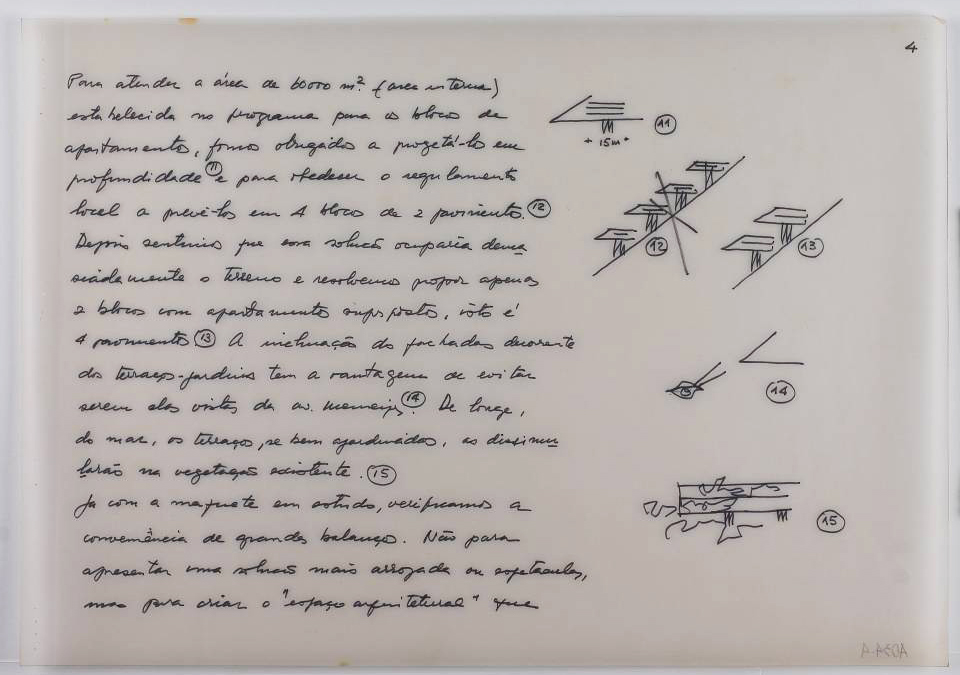 4
Para atender a área de 60000 m² (area interna)
estabelecida no programa para os blocos de
apartamentos, fomos obrigados a projetá-los em
profundidade (11) e para obedecer o regulamento
local a prevê-los em 4 blocos de 2 pavimentos. (12)
Depois sentimos que essa solução ocuparia dema
siadamente o terreno e resolvemos propor apenas
2 blocos com apartamentos superpostos, isto é
4 pavimentos (13) A inclinação das fachadas decorrente
dos terraços-jardins tem a vantagem de evitar
serem elas vistas da av. (14) De longe,
do mar, os terraços, se bem ajardinados, as dissimu
larão na vegetação existente. (15)
Ja com a maquete em estudo, verificamos a
conveniência de grandes balanços. Não para
apresentar uma solução mais arrojada ou espetacular,
mas para criar o "espaço arquitetural" que
11
+ 15m +
12
13
15
14
15